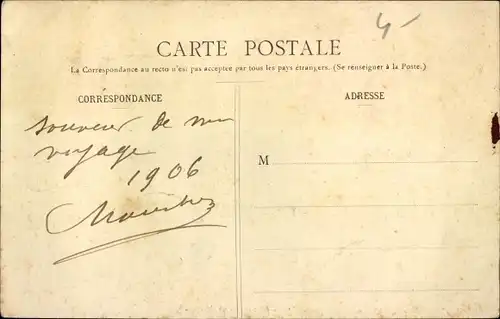 4-
CARTE POSTALE
La Correspondance au recto n'est pas acceptée par tous les pays étrangers. (Se renseigner à la Poste.)
CORRESPONDANCE
souvenir de mon
voyage
1906
ADRESSE
M